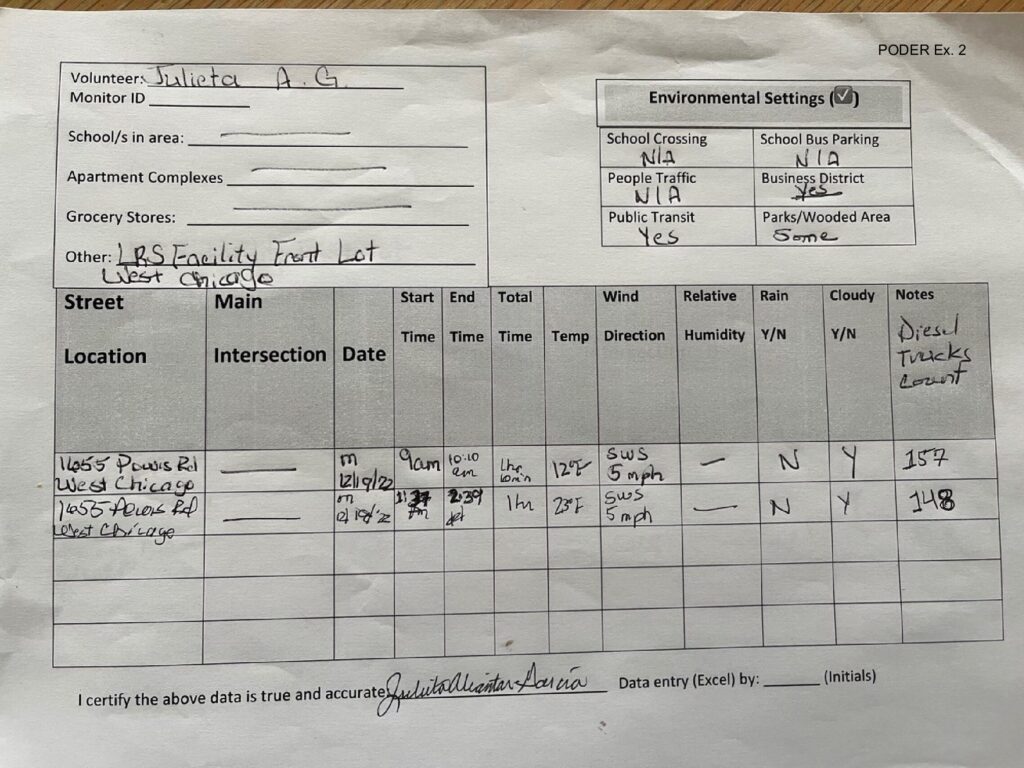 PODER Ex. 2
Volunteer: Julieta A. G.
Monitor ID
School/s in area:
Apartment Complexes
Grocery Stores:
Other: LRS Facility Front Lot
West Chicago
Environmental Settings (✓)
School Crossing School Bus Parking
N/A N/A
People Traffic Business District
N/A Yes
Public Transit Parks/Wooded Area
Yes Some
Street Main Start End Total Wind Relative Rain Cloudy Notes
Location Intersection Date Time Time Time Temp Direction Humidity Y/N Y/N Diesel
Trucks
Count
1655 Powis Rd — m 9am 10:10 1hr 12°F SWS — N Y 157
West Chicago 12/19/22 am 10min 5 mph
1655 Powis Rd — m 2:39 1hr 23°F SWS — N Y 148
West Chicago 12/19/22 5 mph
I certify the above data is true and accurate: Julieta Alcantar Garcia Data entry (Excel) by: (Initials)